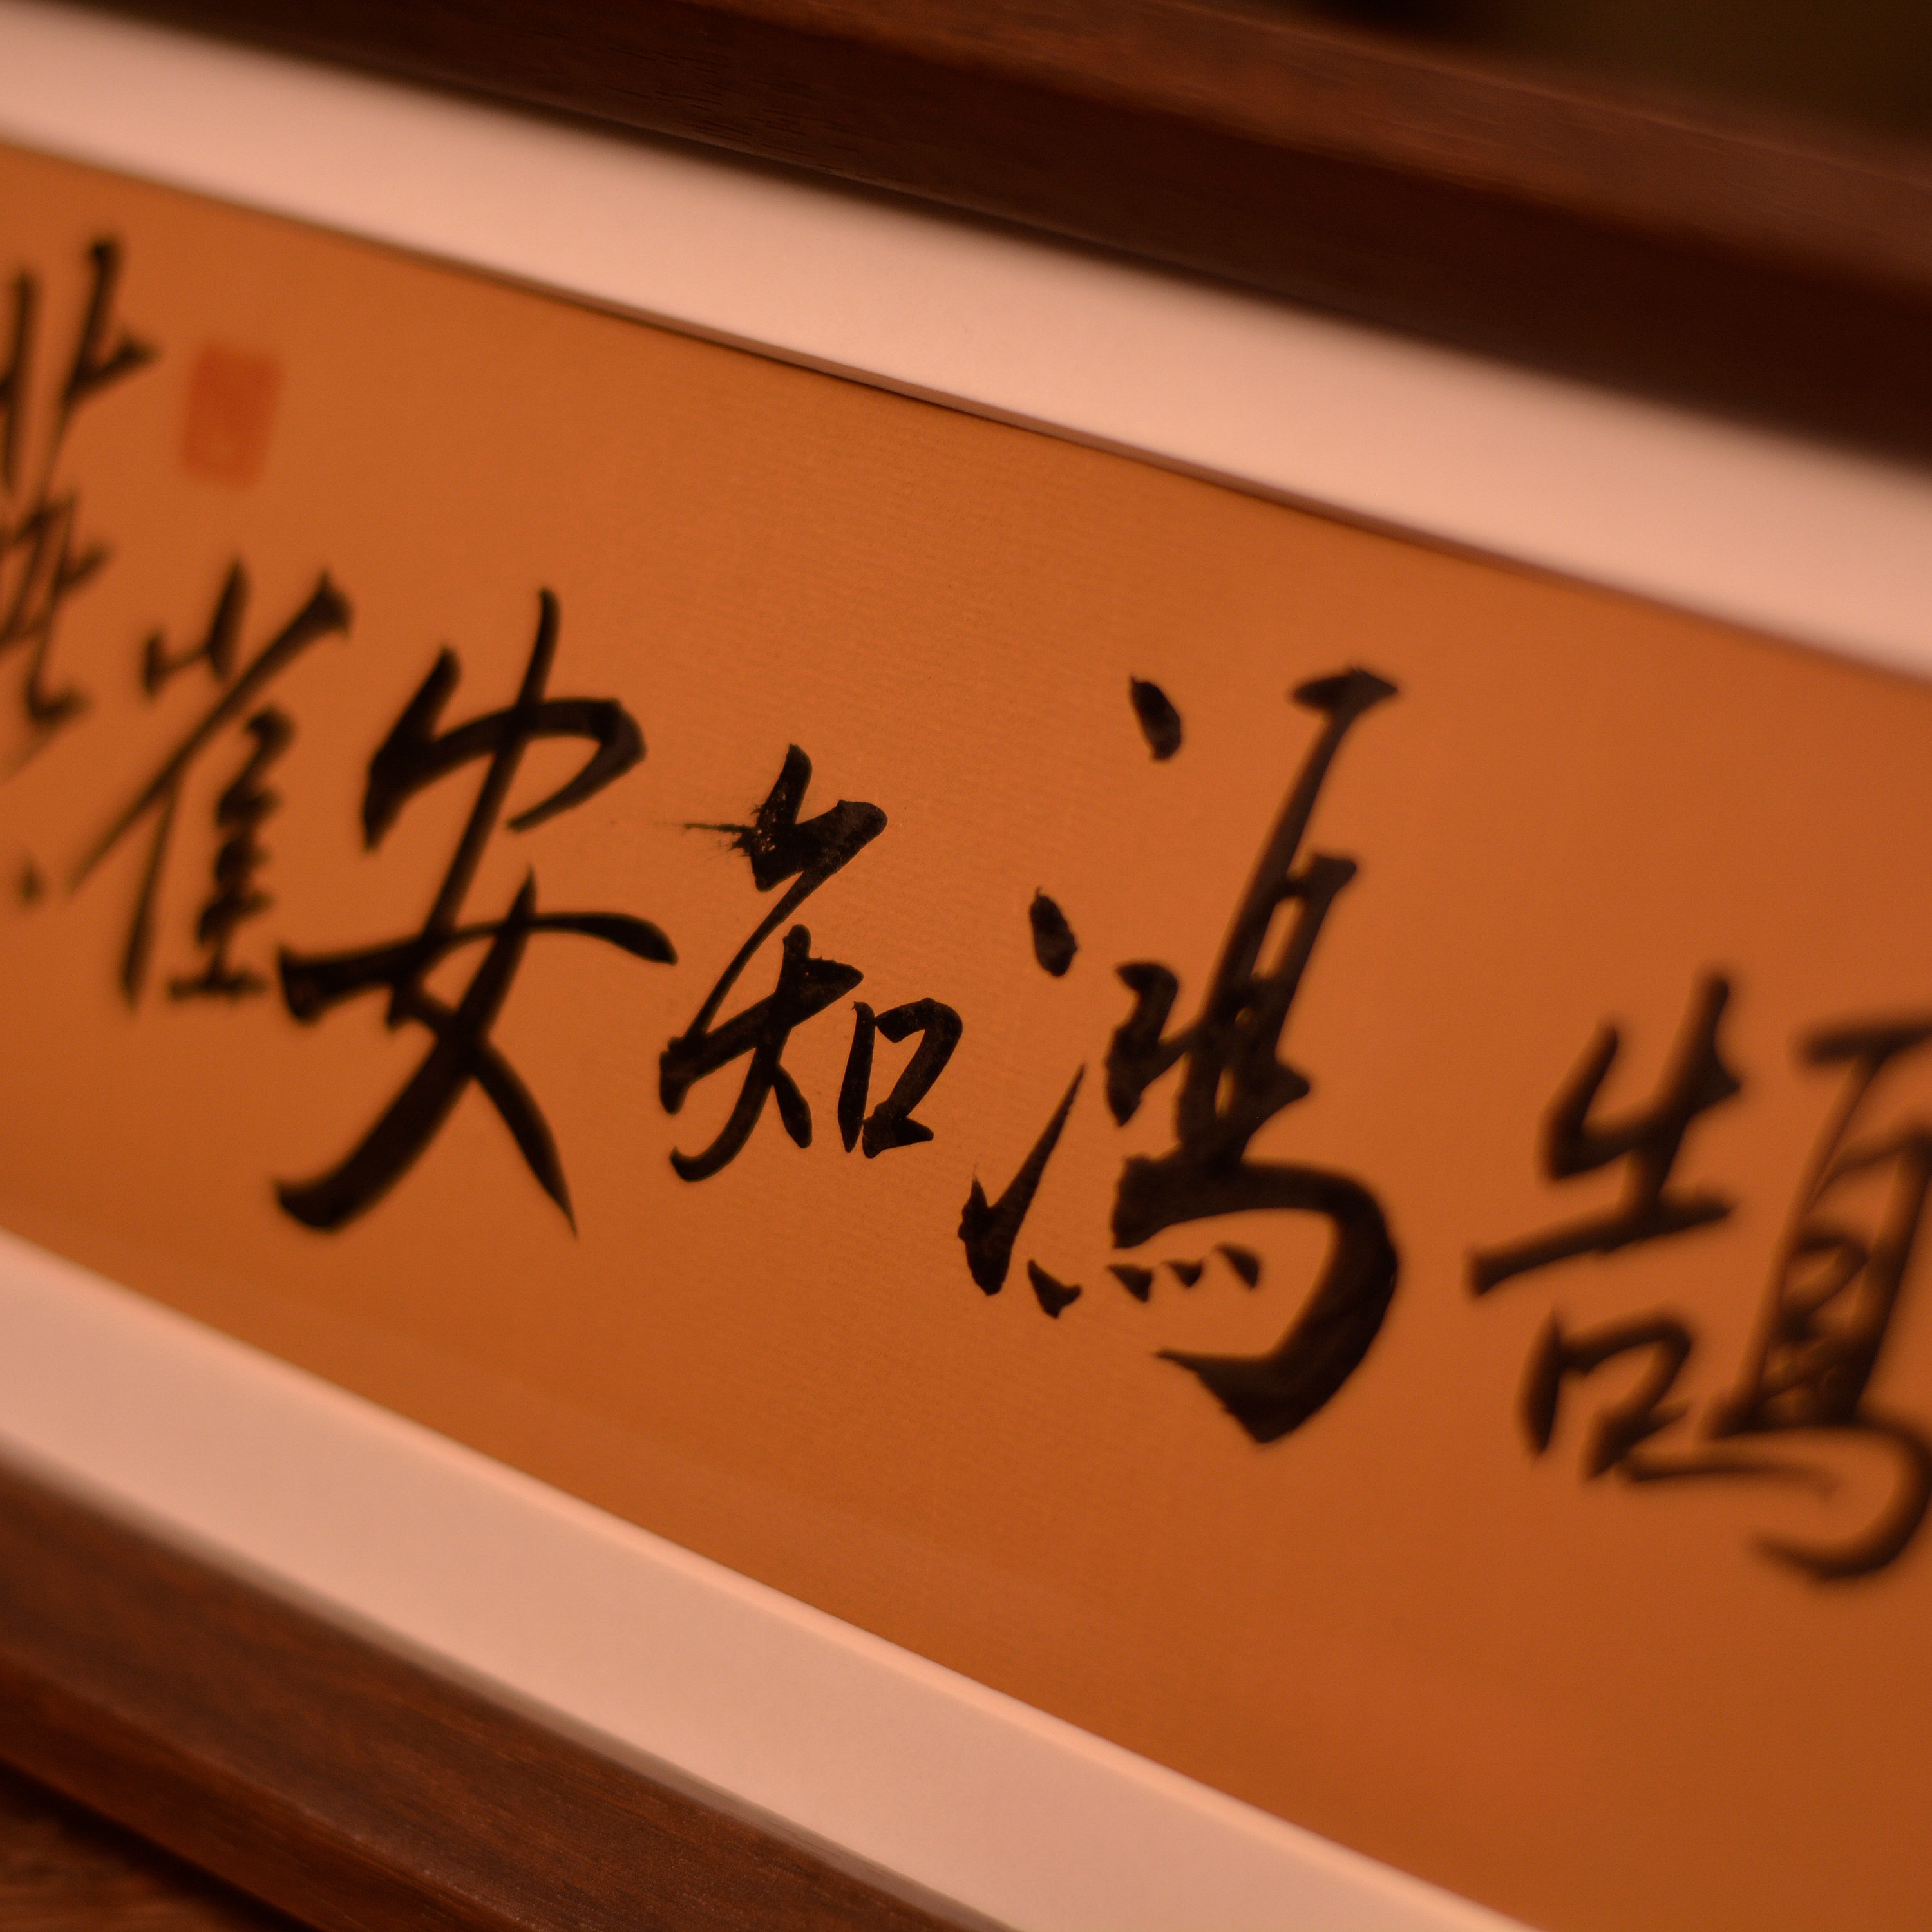 燕雀安知鴻鵠